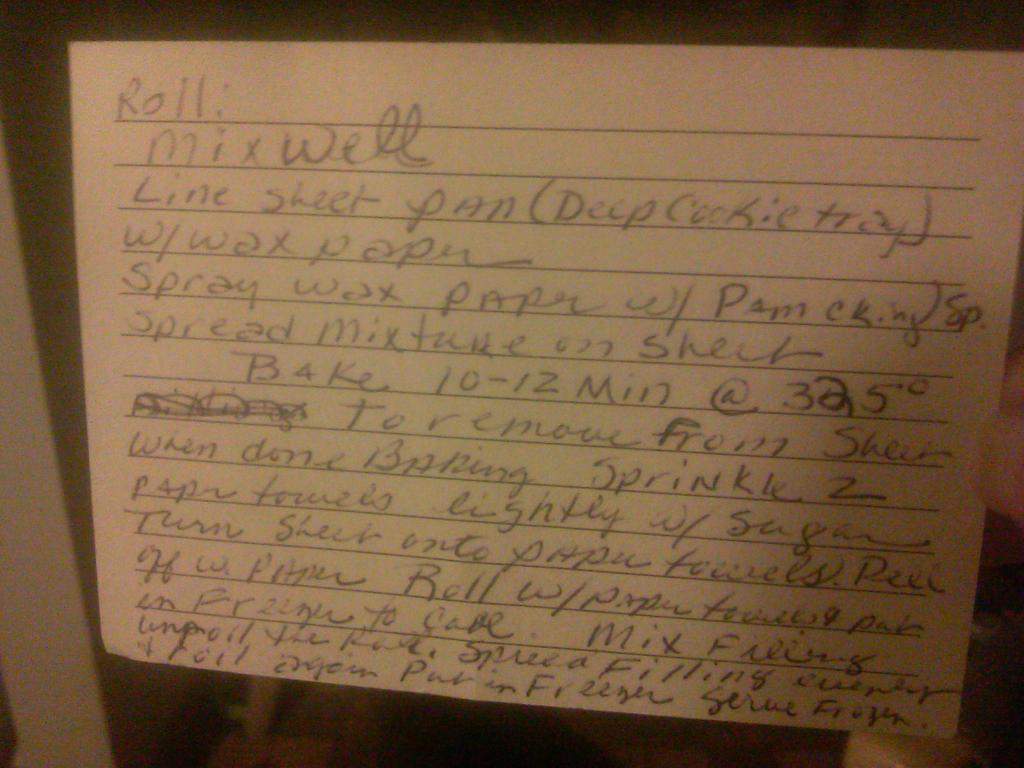 Roll:
Mix Well
Line sheet pan (Deep Cookie tray)
w/ wax paper
Spray wax paper w/ Pam cking Sp.
Spread Mixture on Sheet
Bake 10-12 Min @ 325°
To remove From Sheet
when done Baking Sprinkle 2
paper towels lightly w/ Sugar
Turn Sheet onto paper towels. Peel
off w. Paper Roll w/ paper towels & put
in Freezer to Cool. Mix Filling
unroll the Roll. Spread Filling evenly
& roll again Put in Freezer Serve Frozen.